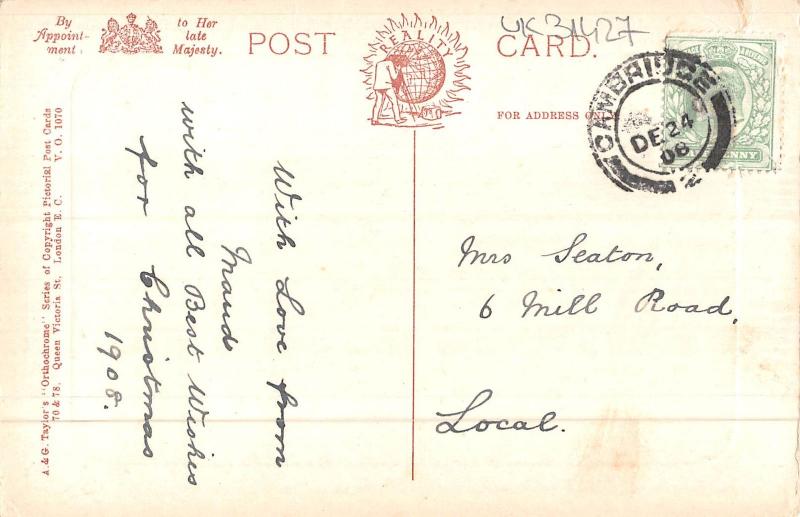 By
Appoint-
ment
to Her
late
Majesty.
POST
CARD.
UK31427
REALITY
FOR ADDRESS ONLY
CAMBRIDGE
DE 24
08
2
NNY
With Love from
Maud
with all Best Wishes
for Christmas
1908.
Mrs Seaton,
6 Mill Road,
Local.
A. & G. Taylor's "Orthochrome" Series of Copyright Pictorial Post Cards
70 & 78, Queen Victoria St. London E. C. V. O. 1070